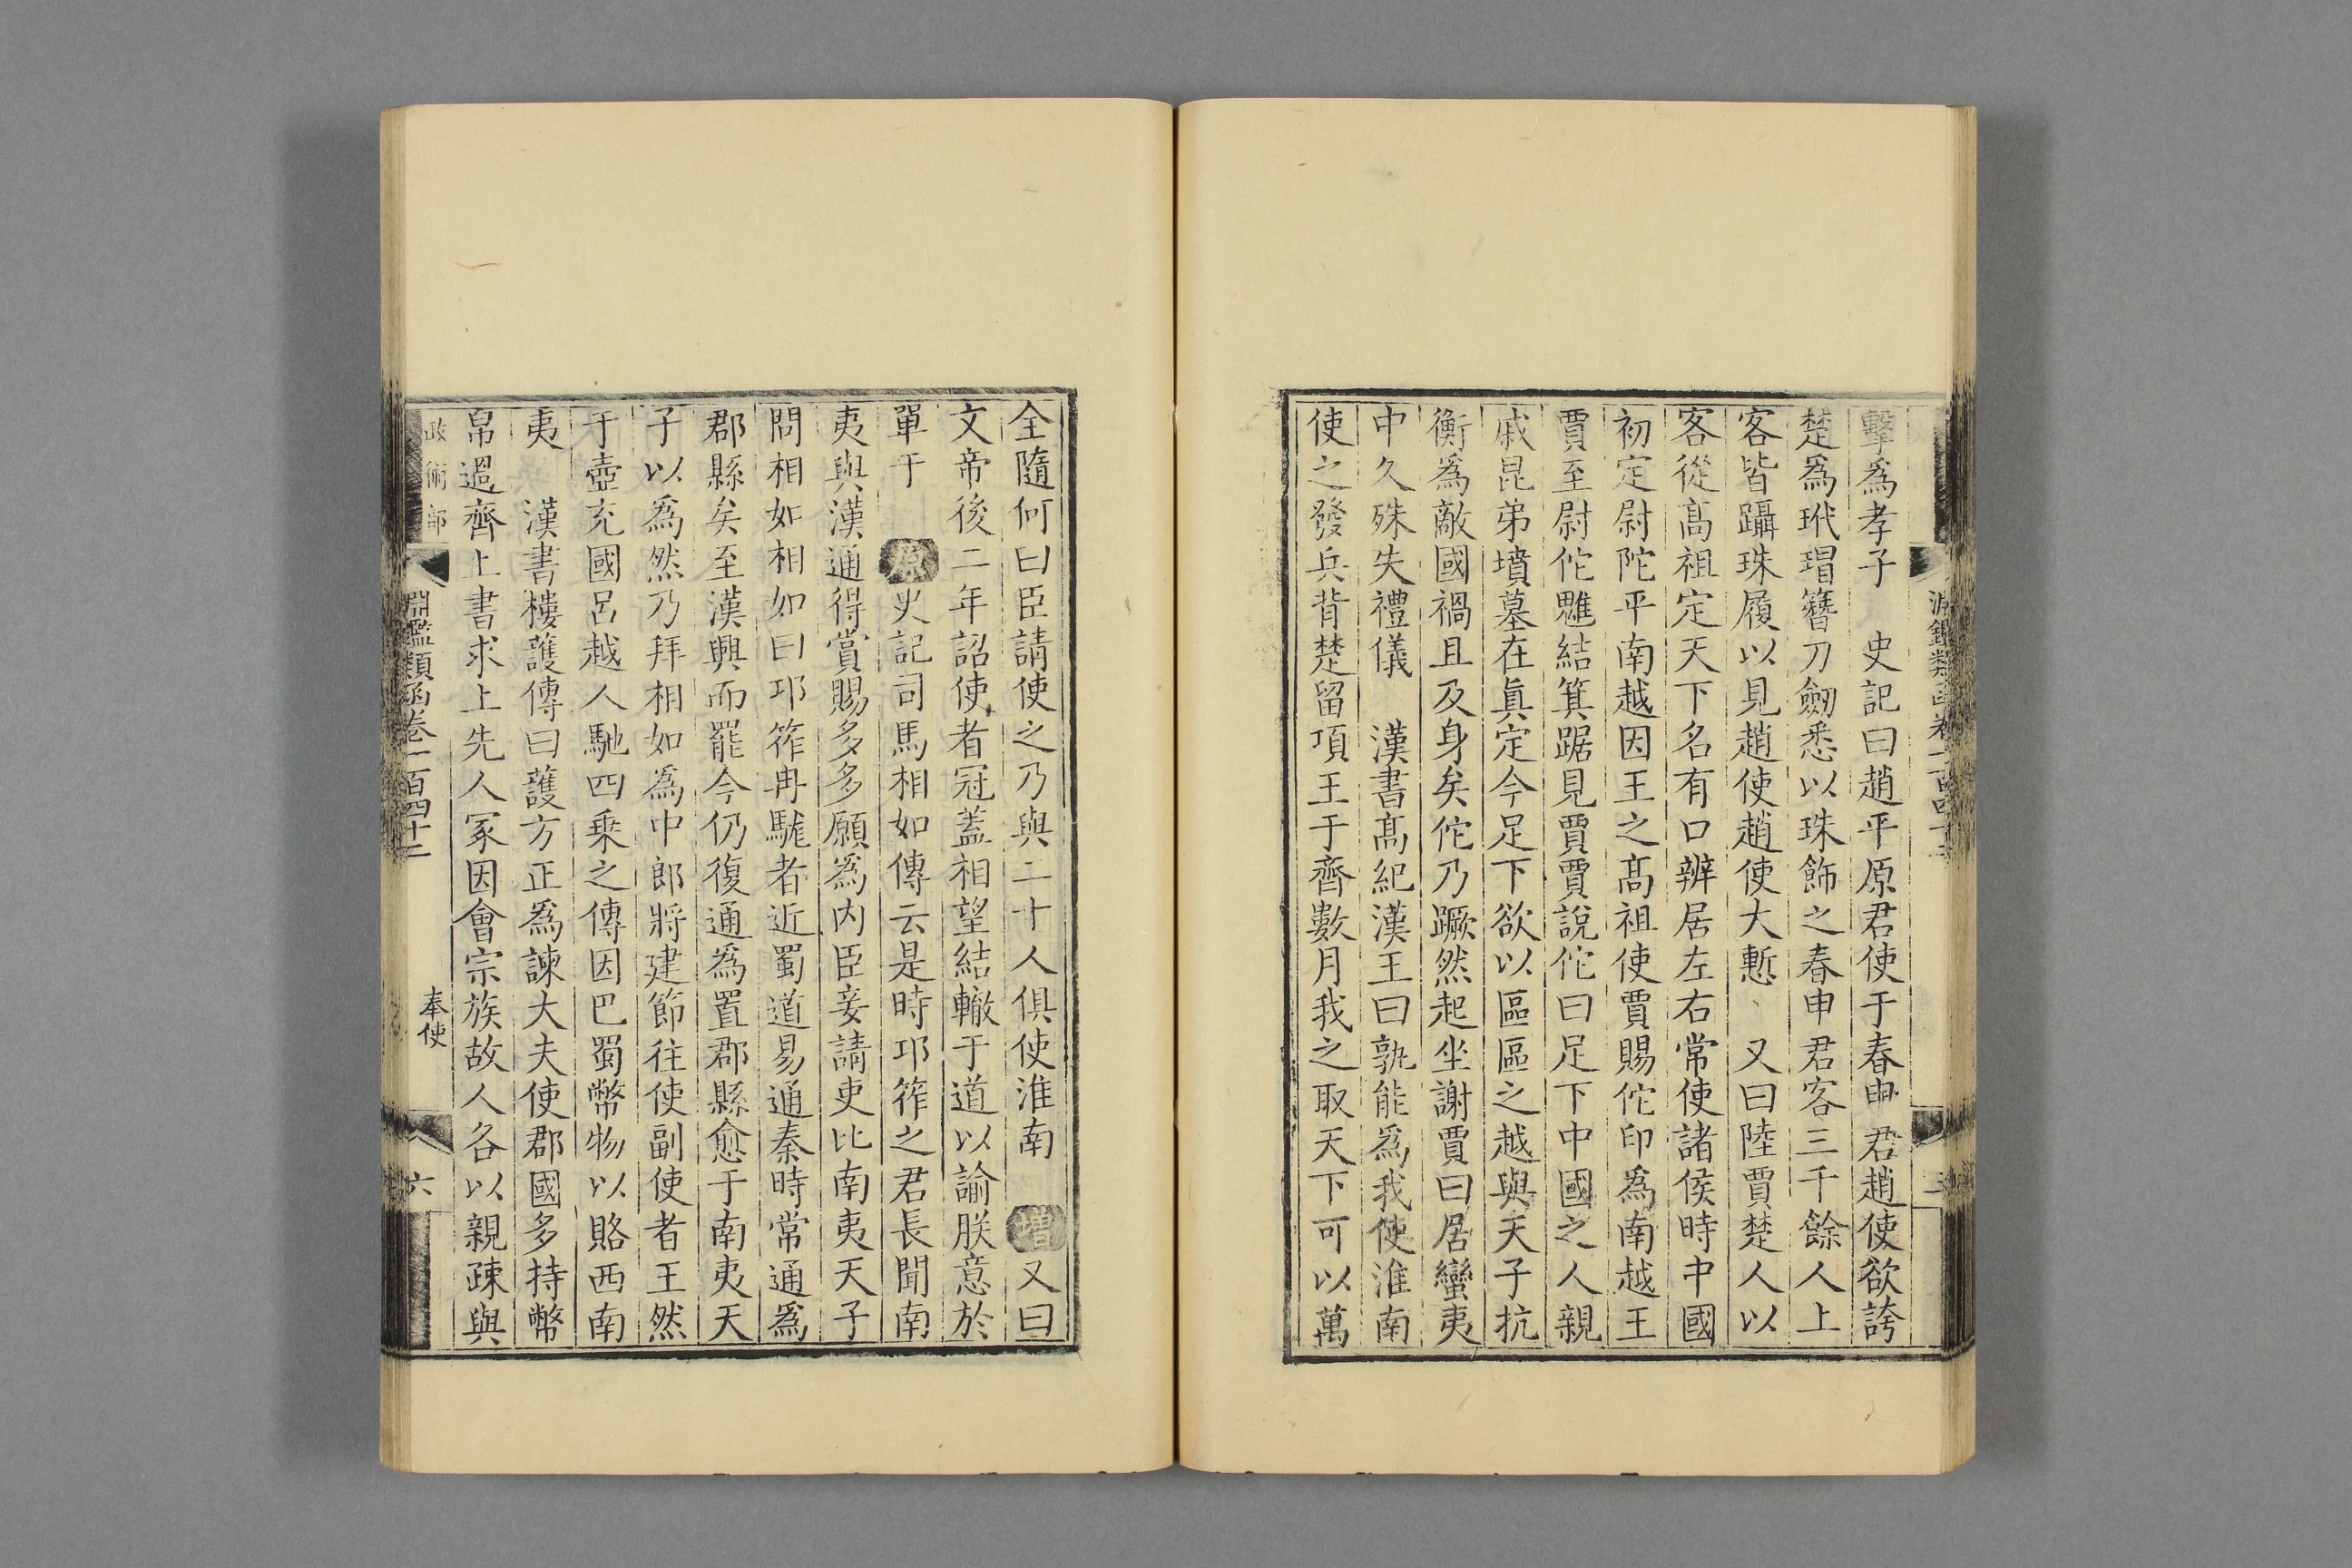 擊爲孝子　史記曰趙平原君使于春申君趙使欲誇
楚爲玳瑁簪刀劒悉以珠飾之春申君客三千餘人上
客皆躡珠履以見趙使趙使大慙　又曰陸賈楚人以
客從高祖定天下名有口辨居左右常使諸侯時中國
初定尉陀平南越因王之高祖使賈賜佗印爲南越王
賈至尉佗魋結箕踞見賈賈說佗曰足下中國之人親
戚昆弟墳墓在眞定今足下欲以區區之越與天子抗
衡爲敵國禍且及身矣佗乃蹶然起坐謝賈曰居蠻夷
中久殊失禮儀　漢書高紀漢王曰孰能爲我使淮南
使之發兵背楚留項王于齊數月我之取天下可以萬
全隨何曰臣請使之乃與二十人俱使淮南　增又曰
文帝後二年詔使者冠蓋相望結轍于道以諭朕意於
單于　原史記司馬相如傳云是時邛筰之君長聞南
夷與漢通得賞賜多多願爲内臣妾請吏比南夷天子
問相如相如曰邛筰冉駹者近蜀道易通秦時常通爲
郡縣矣至漢興而罷今仍復通爲置郡縣愈于南夷天
子以爲然乃拜相如爲中郎將建節往使副使者王然
于壺充國呂越人馳四乘之傳因巴蜀幣物以賂西南
夷　漢書樓護傳曰護方正爲諫大夫使郡國多持幣
帛過齊上書求上先人冢因會宗族故人各以親疎與
政術部　淵鑑類函卷一百四十二　奉使　六